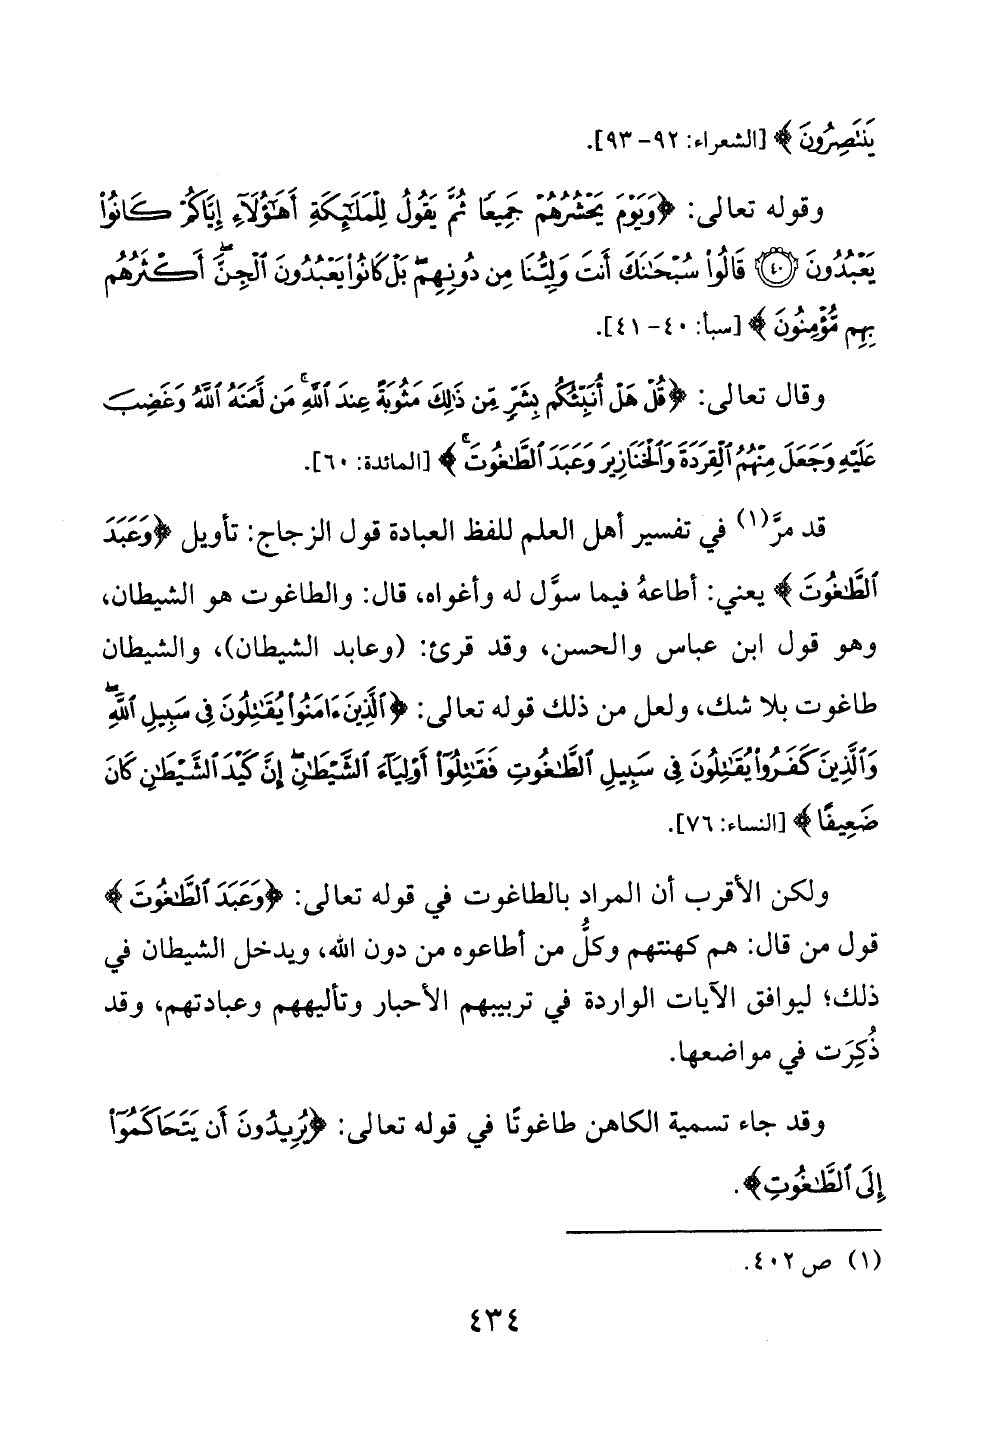 يَنتَصِرُونَ ﴾ [الشعراء: ٩٢- ٩٣].
وقوله تعالى: ﴿وَيَوْمَ يَحْشُرُهُمْ جَمِيعًا ثُمَّ يَقُولُ لِلْمَلَٰٓئِكَةِ أَهَٰٓؤُلَآءِ إِيَّاكُمْ كَانُوا۟
يَعْبُدُونَ ﴿٤٠﴾ قَالُوا۟ سُبْحَٰنَكَ أَنتَ وَلِيُّنَا مِن دُونِهِم ۖ بَلْ كَانُوا۟ يَعْبُدُونَ ٱلْجِنَّ ۖ أَكْثَرُهُم
بِهِم مُّؤْمِنُونَ ﴾ [سبأ: ٤٠- ٤١].
وقال تعالى: ﴿قُلْ هَلْ أُنَبِّئُكُم بِشَرٍّ مِّن ذَٰلِكَ مَثُوبَةً عِندَ ٱللَّهِ ۚ مَن لَّعَنَهُ ٱللَّهُ وَغَضِبَ
عَلَيْهِ وَجَعَلَ مِنْهُمُ ٱلْقِرَدَةَ وَٱلْخَنَازِيرَ وَعَبَدَ ٱلطَّٰغُوتَ ۚ ﴾ [المائدة: ٦٠].
قد مرَّ(١) في تفسير أهل العلم للفظ العبادة قول الزجاج: تأويل ﴿وَعَبَدَ
ٱلطَّٰغُوتَ ﴾ يعني: أطاعهُ فيما سوَّل له وأغواه، قال: والطاغوت هو الشيطان،
وهو قول ابن عباس والحسن، وقد قرئ: (وعابد الشيطان)، والشيطان
طاغوت بلا شك، ولعل من ذلك قوله تعالى: ﴿ٱلَّذِينَ ءَامَنُوا۟ يُقَٰتِلُونَ فِى سَبِيلِ ٱللَّهِ ۖ
وَٱلَّذِينَ كَفَرُوا۟ يُقَٰتِلُونَ فِى سَبِيلِ ٱلطَّٰغُوتِ فَقَٰتِلُوٓا۟ أَوْلِيَآءَ ٱلشَّيْطَٰنِ ۖ إِنَّ كَيْدَ ٱلشَّيْطَٰنِ كَانَ
ضَعِيفًا ﴾ [النساء: ٧٦].
ولكن الأقرب أن المراد بالطاغوت في قوله تعالى: ﴿وَعَبَدَ ٱلطَّٰغُوتَ ﴾
قول من قال: هم كهنتهم وكلُّ من أطاعوه من دون الله، ويدخل الشيطان في
ذلك؛ ليوافق الآيات الواردة في تربيبهم الأحبار وتأليههم وعبادتهم، وقد
ذُكِرَت في مواضعها.
وقد جاء تسمية الكاهن طاغوتًا في قوله تعالى: ﴿يُرِيدُونَ أَن يَتَحَاكَمُوٓا۟
إِلَى ٱلطَّٰغُوتِ﴾.
(١) ص ٤٠٢.
٤٣٤